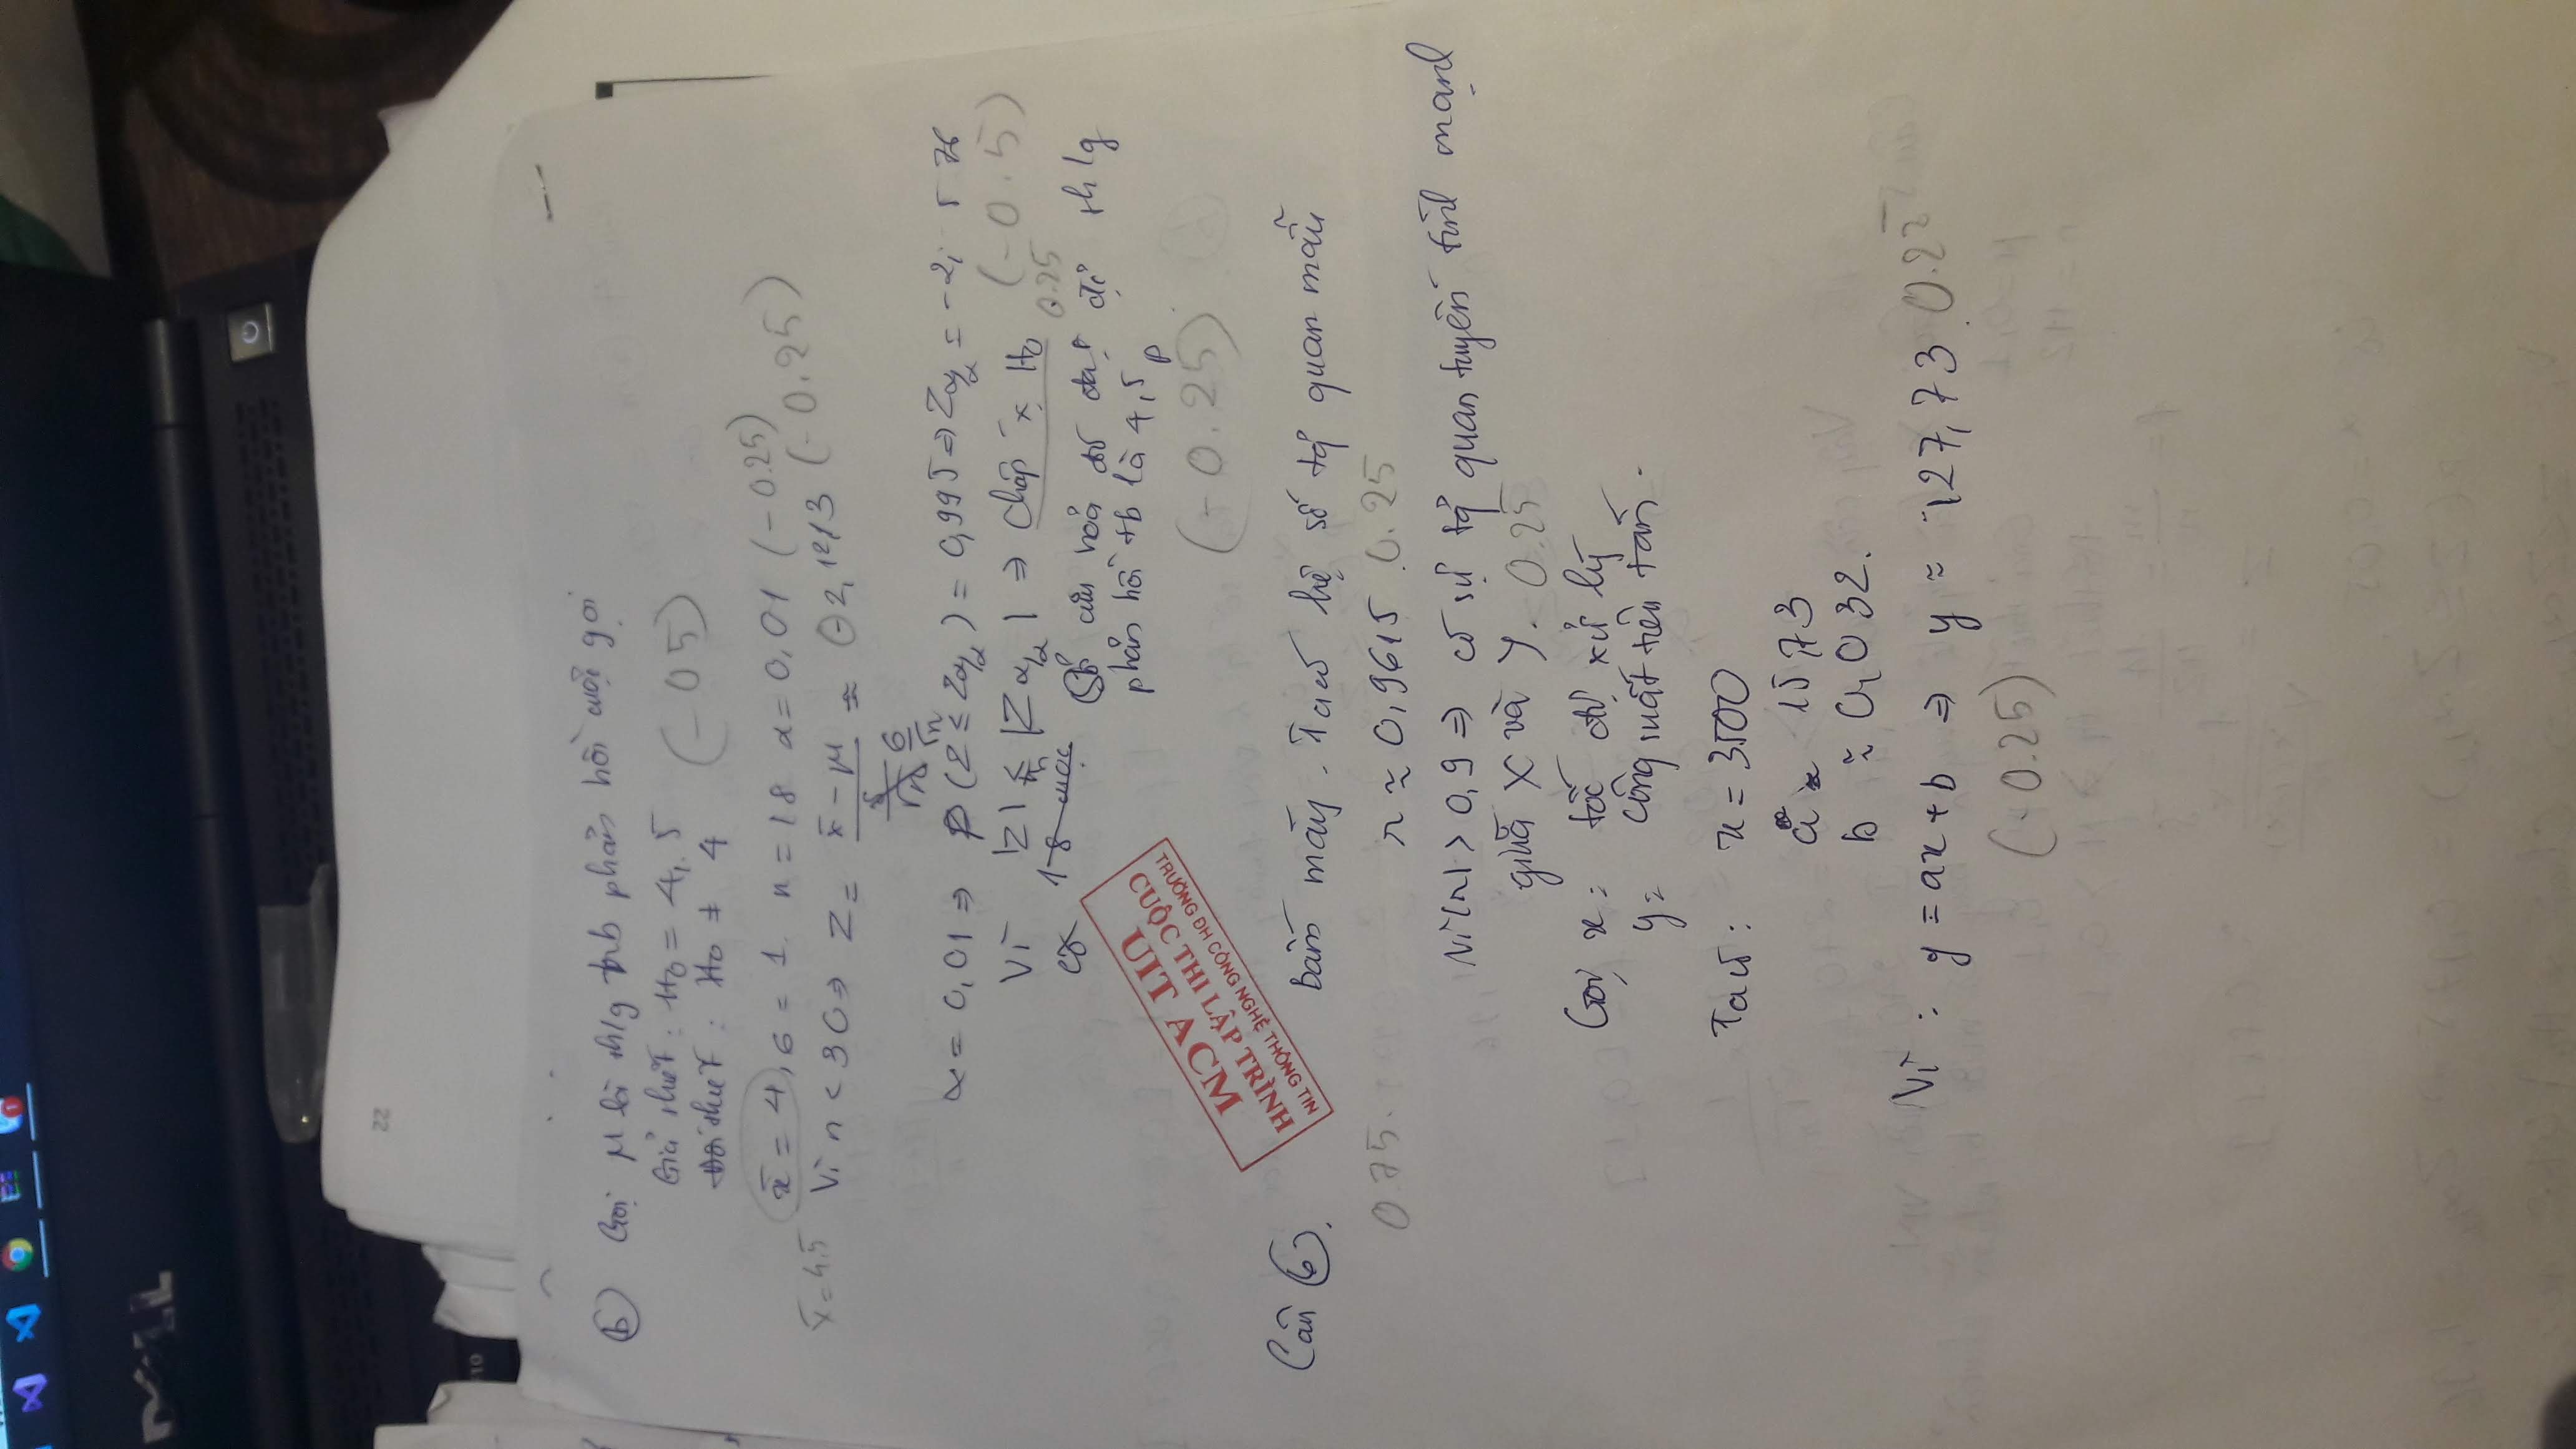 DELL
22
F10
b) Gọi μ là th/g tb phản hồi cuộc gọi
Giả thiết : H₀ = 4,5 (-05)
Đối thiết : H₀ ≠ 4
x̄ = 4, σ = 1. n = 18 α = 0,01 (-0.25)
x̄ = 4.5
Vì n < 30 ⇒ Z = (x̄ - μ) / (σ/√n) ≈ -2,1213 (-0.25)
α = 0,01 ⇒ P(Z ≤ Zα/2) = 0,995 ⇒ Zα/2 = -2,576
Vì |Z| ≤ |Zα/2| ⇒ Chấp x H₀ (-0.5)
0.25
18 cuộc
cứu hoả đó đạt đc th/g
phản hồi tb là 4,5p
(-0.25)
TRƯỜNG ĐH CÔNG NGHỆ THÔNG TIN
CUỘC THI LẬP TRÌNH
UIT ACM
Câu 6. Bấm máy. Ta có hệ số tg quan mẫu
075. r ≈ 0,9615 0.25
Vì |r| > 0,9 ⇒ có sự tg quan tuyến tính mạnh
giữa X và Y. 0.25
Gọi x = tốc độ xử lý
y = công suất tiêu tán.
Ta có : x = 3500
a ≈ 15,73
b ≈ 0,032.
Vì : y = ax + b ⇒ y ≈ 127,73 0.25
(-0.25)